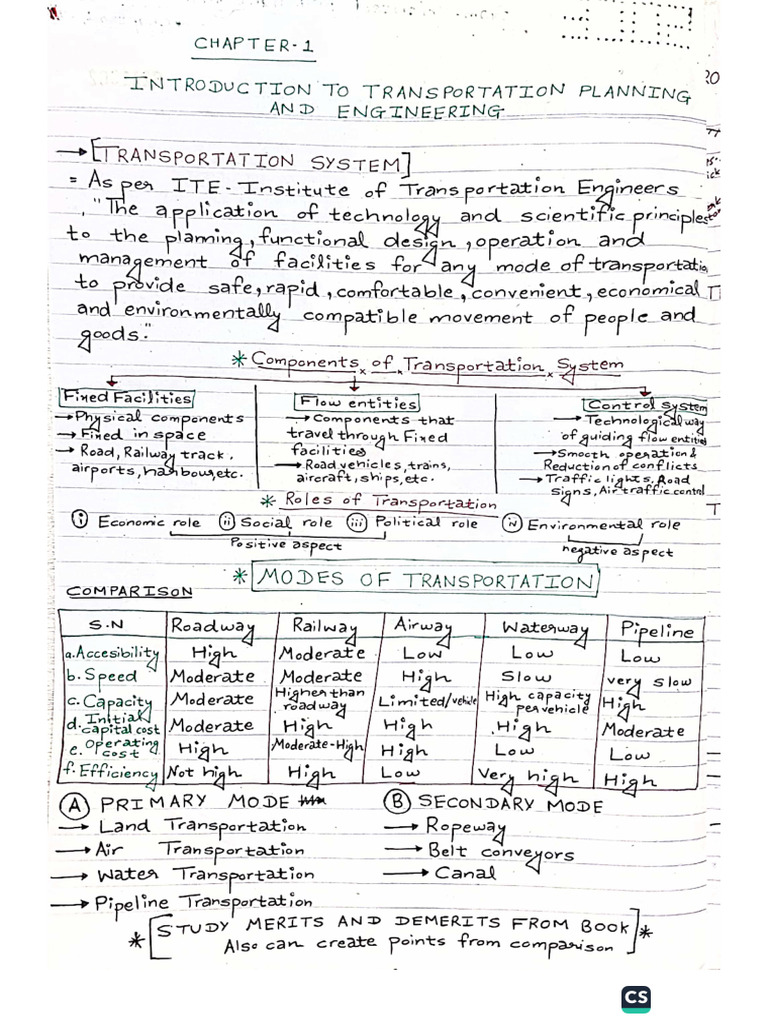 CHAPTER-1
INTRODUCTION TO TRANSPORTATION PLANNING
AND ENGINEERING
→ [TRANSPORTATION SYSTEM]
= As per ITE-Institute of Transportation Engineers
"The application of technology and scientific principles
to the planning, functional design, operation and
management of facilities for any mode of transportatio
to provide safe, rapid, comfortable, convenient, economical
and environmentally compatible movement of people and
goods."
* Components of Transportation System
Fixed Facilities
→ Physical components
→ Fixed in space
→ Road, Railway track,
airports, harbour, etc.
Flow entities
→ Components that
travel through Fixed
facilities
→ Road vehicles, trains,
aircraft, ships, etc.
Control system
→ Technological way
of guiding flow entities
→ Smooth operation &
Reduction of conflicts
→ Traffic lights, Road
signs, Air traffic control
* Roles of Transportation
(i) Economic role (ii) Social role (iii) Political role (iv) Environmental role
Positive aspect negative aspect
* MODES OF TRANSPORTATION
COMPARISON
S.N Roadway Railway Airway Waterway Pipeline
a. Accesibility High Moderate Low Low Low
b. Speed Moderate Moderate High Slow very slow
c. Capacity Moderate Higher than roadway Limited/vehicle High capacity per vehicle High
d. Initial capital cost Moderate High High High Moderate
e. Operating cost High Moderate-High High Low Low
f. Efficiency Not high High Low Very high High
(A) PRIMARY MODE
→ Land Transportation
→ Air Transportation
→ Water Transportation
→ Pipeline Transportation
(B) SECONDARY MODE
→ Ropeway
→ Belt conveyors
→ Canal
* [STUDY MERITS AND DEMERITS FROM BOOK
Also can create points from comparison] *
CS